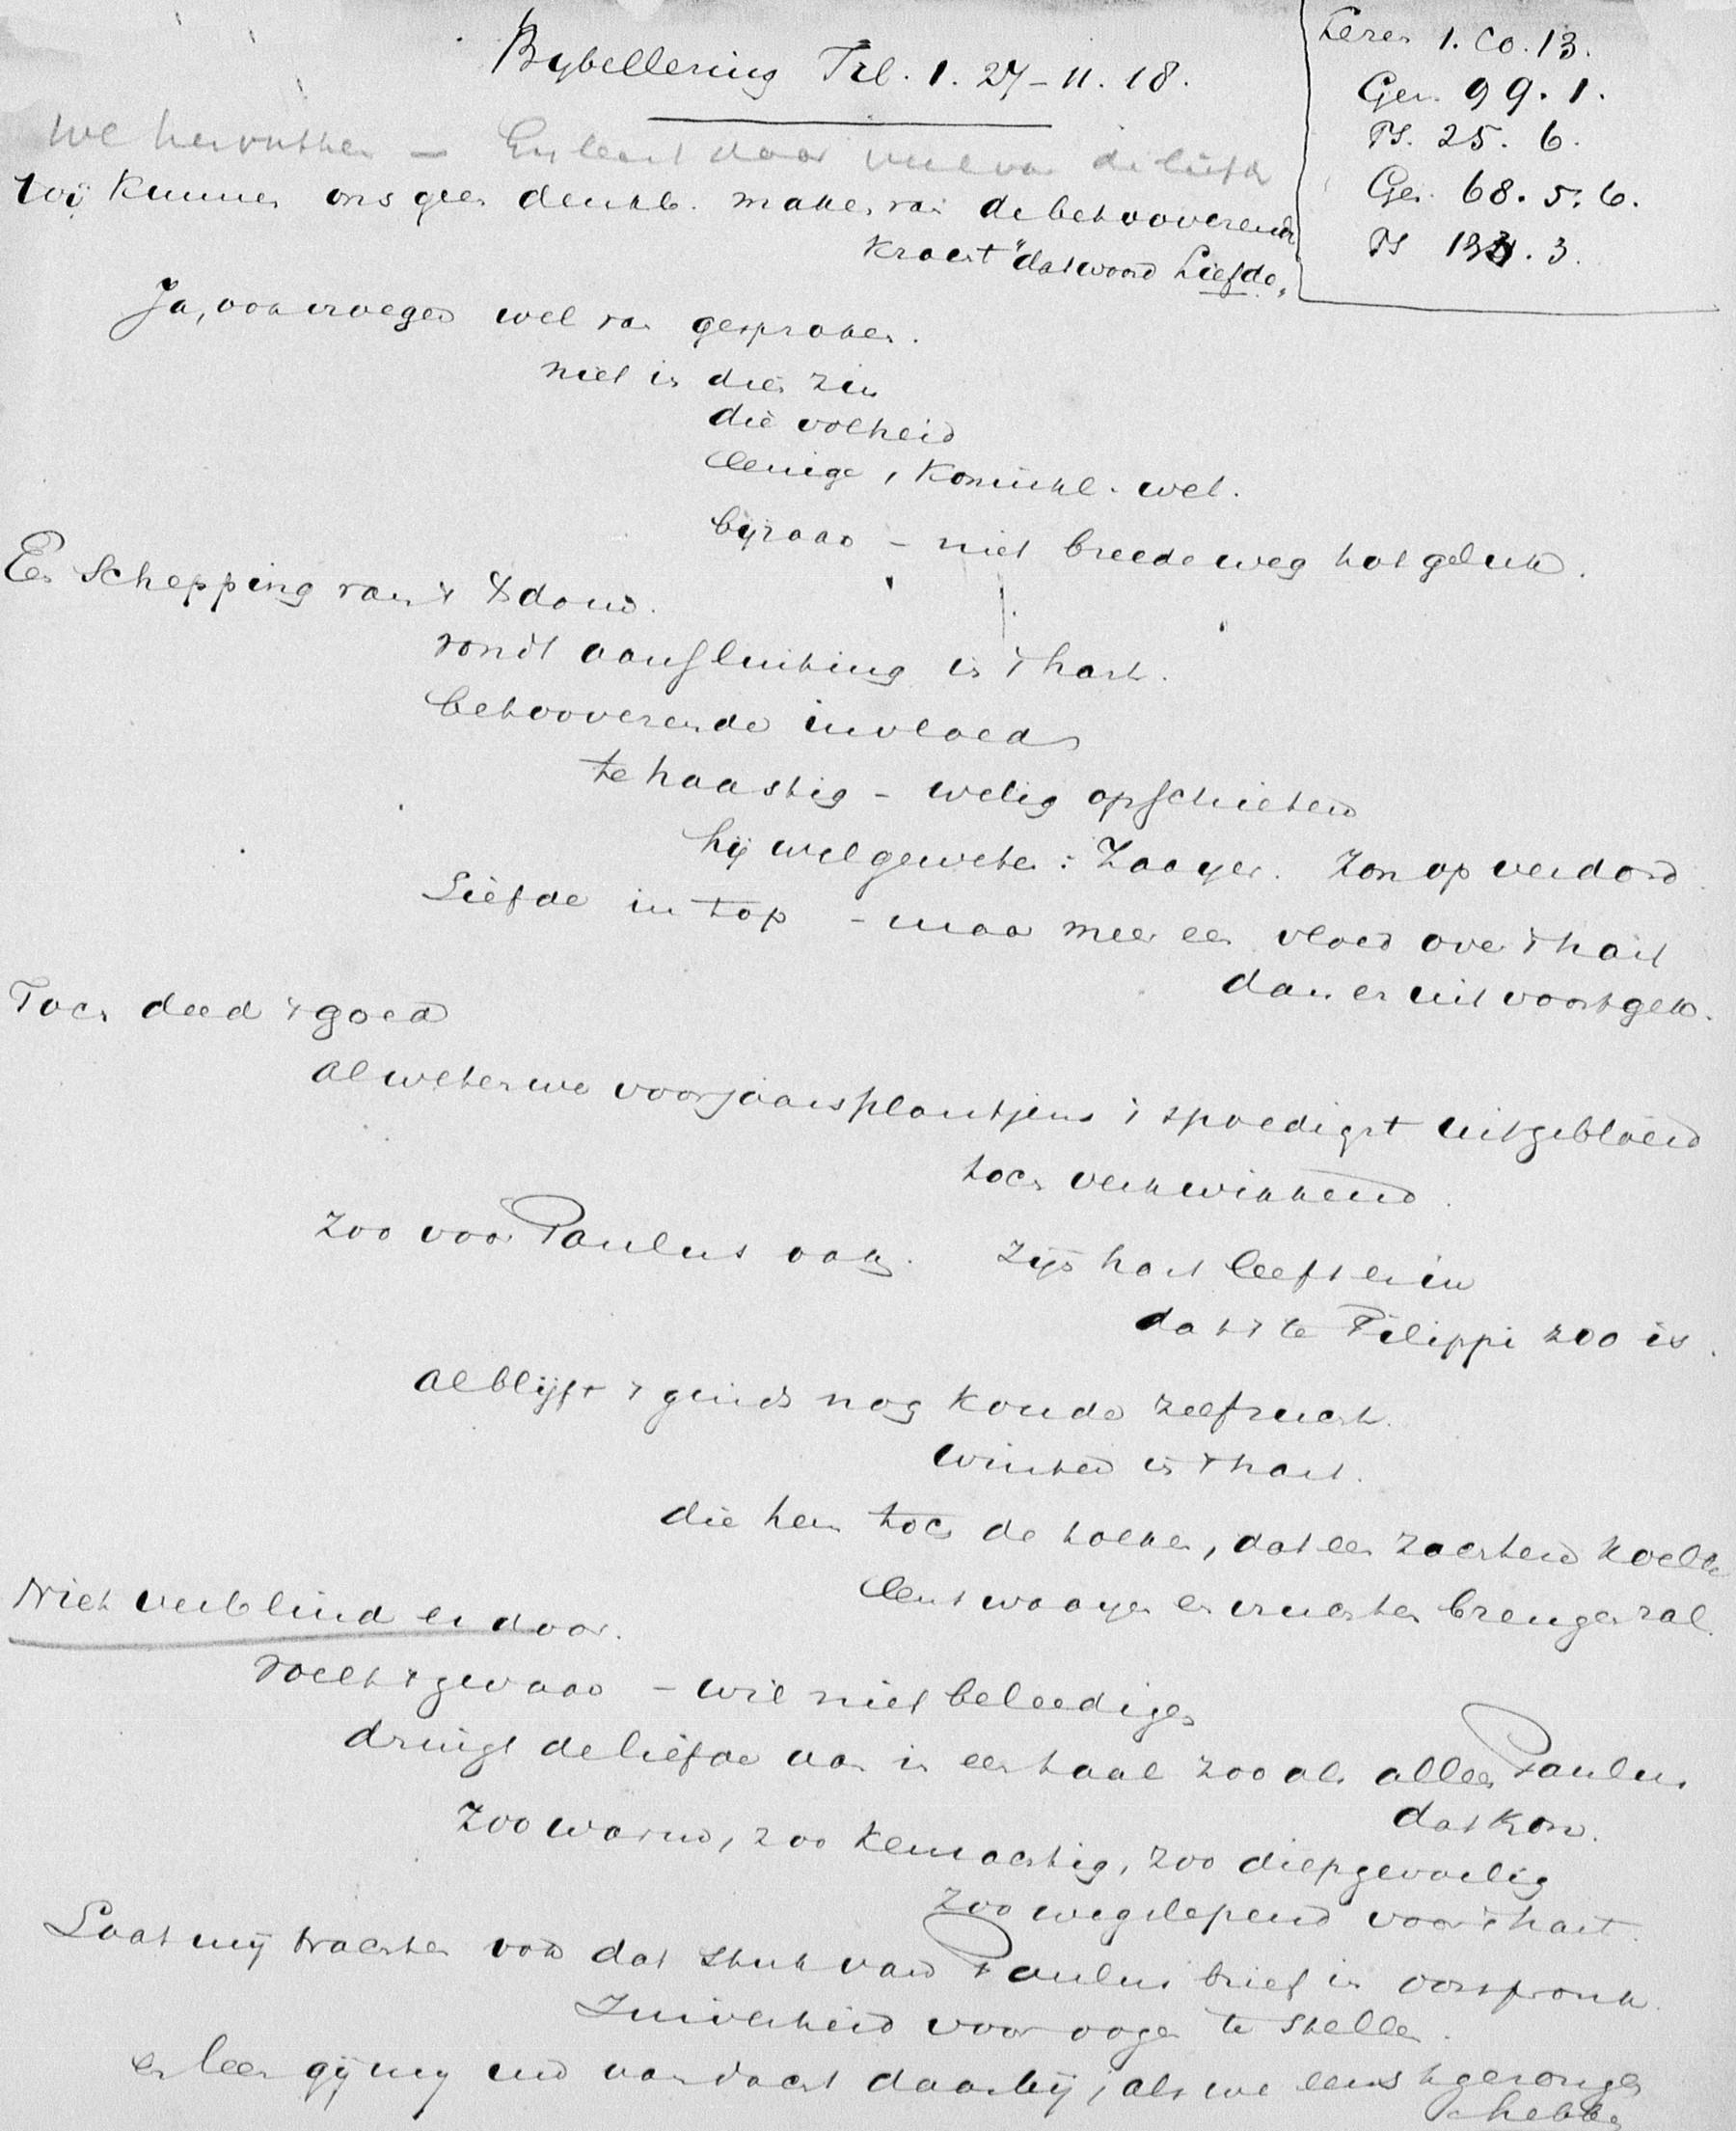 Bybellezing Fil. 1. 27 - 11. 18.
Lezen 1. Co. 13.
Gez. 99. 1.
Ps. 25. 6.
Gez. 68. 5. 6.
Ps 133. 3.
We hervatten — En leert daar veel van de liefde
Wij kunnen ons geen denkb. maken van de betooverende
kracht "dat woord Liefde"
Ja, ook vroeger wel van gesproken.
niet in dien zin
die volheid
eenige, koninkl. wet.
bijzaak - niet breede weg tot geluk.
En Schepping van 't Xdom.
vondt aansluiting in 't hart.
betooverende invloed
te haastig - welig opschietend
hij wel geweten: Zaayer. Zon op verdord
Liefde in top - maar meer een vloed over 't hart
dan er uit voortgek.
Toch deed 't goed
al weten we voorjaarsplantjens 't spoedigst uitgebloeid
toch verkwikkend.
zoo voor Paulus ook. Zijn hart leeft er in
dat 't te Filippi zoo is.
al blijft 't ginds nog koude zelfzucht.
winter in 't hart.
die hem toch de tolken, dat een zachten koelte
eens waayen en vruchten brengen zal.
Niet verblind er door.
voelt 't gevaar - wil niet beleedigen
dringt de liefde aan in een taal zooals alleen Paulus
dat kon.
Zoo warm, zoo kernachtig, zoo diepgevoelig
zoo wegslepend voor 't hart.
Laat mij trachten ook dat stuk van Paulus brief in oorspronk.
Zuiverheid voor oogen te stellen.
en leen gij mij uw aandacht daarbij, als we eens gezongen
hebben